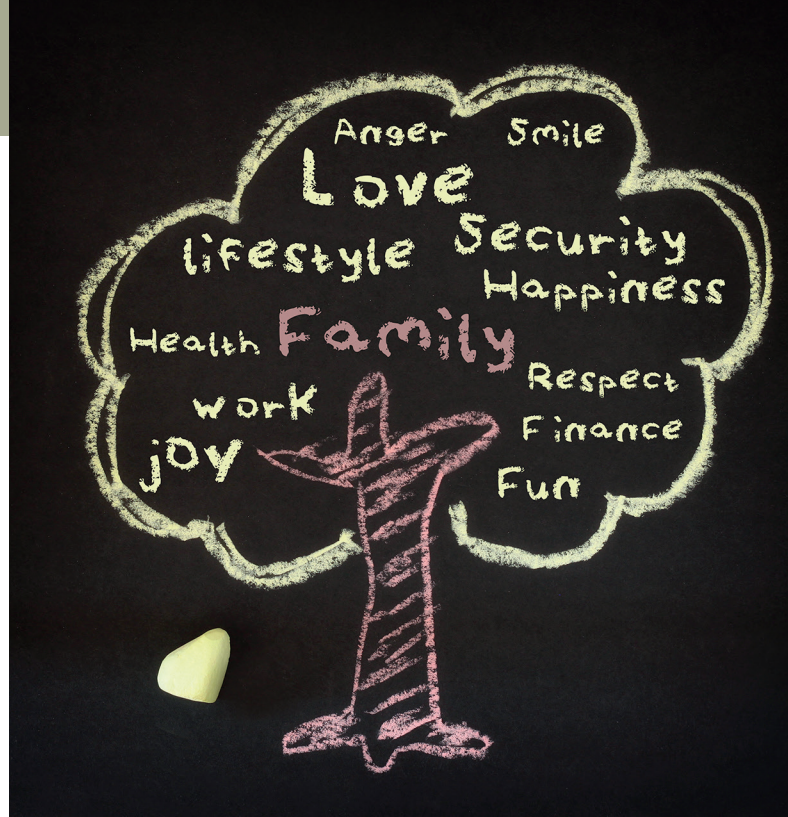 Anger Smile
Love
lifestyle Security
Happiness
Health Family
Respect
work
Finance
joy
Fun